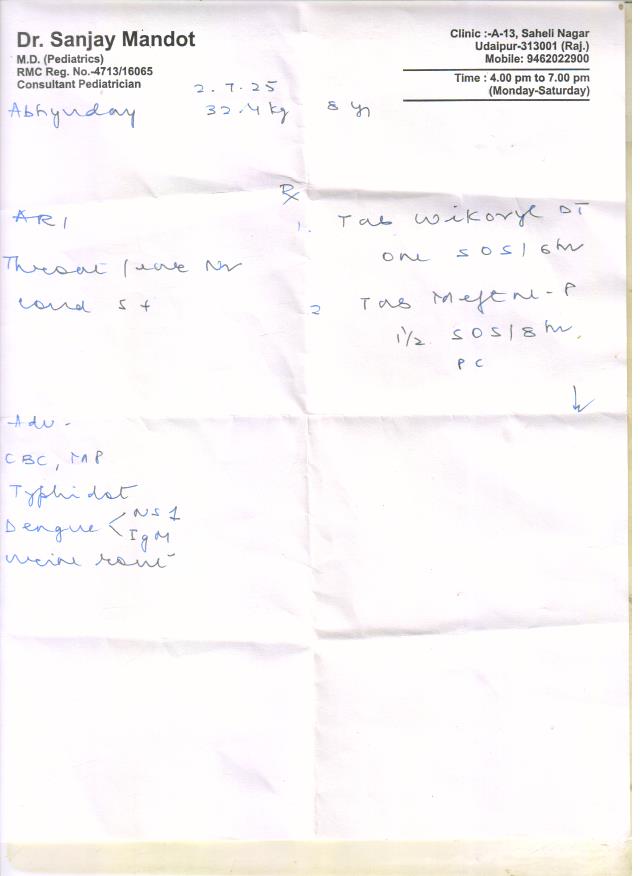 Dr. Sanjay Mandot
M.D. (Pediatrics)
RMC Reg. No.-4713/16065
Consultant Pediatrician
Clinic :-A-13, Saheli Nagar
Udaipur-313001 (Raj.)
Mobile: 9462022900
Time : 4.00 pm to 7.00 pm
(Monday-Saturday)
2.7.25
Abhyuday 32.4 kg 8 yr
ARI
Throat / ear Nr
S +
Rx
1. Tab Wikoryl DT
one SOS / 6 hr
2 Tab Meftal-P
1½ SOS / 8 hr.
PC
↓
Adv -
CBC, MP
Typhidot
Dengue < NS1
IgM
urine